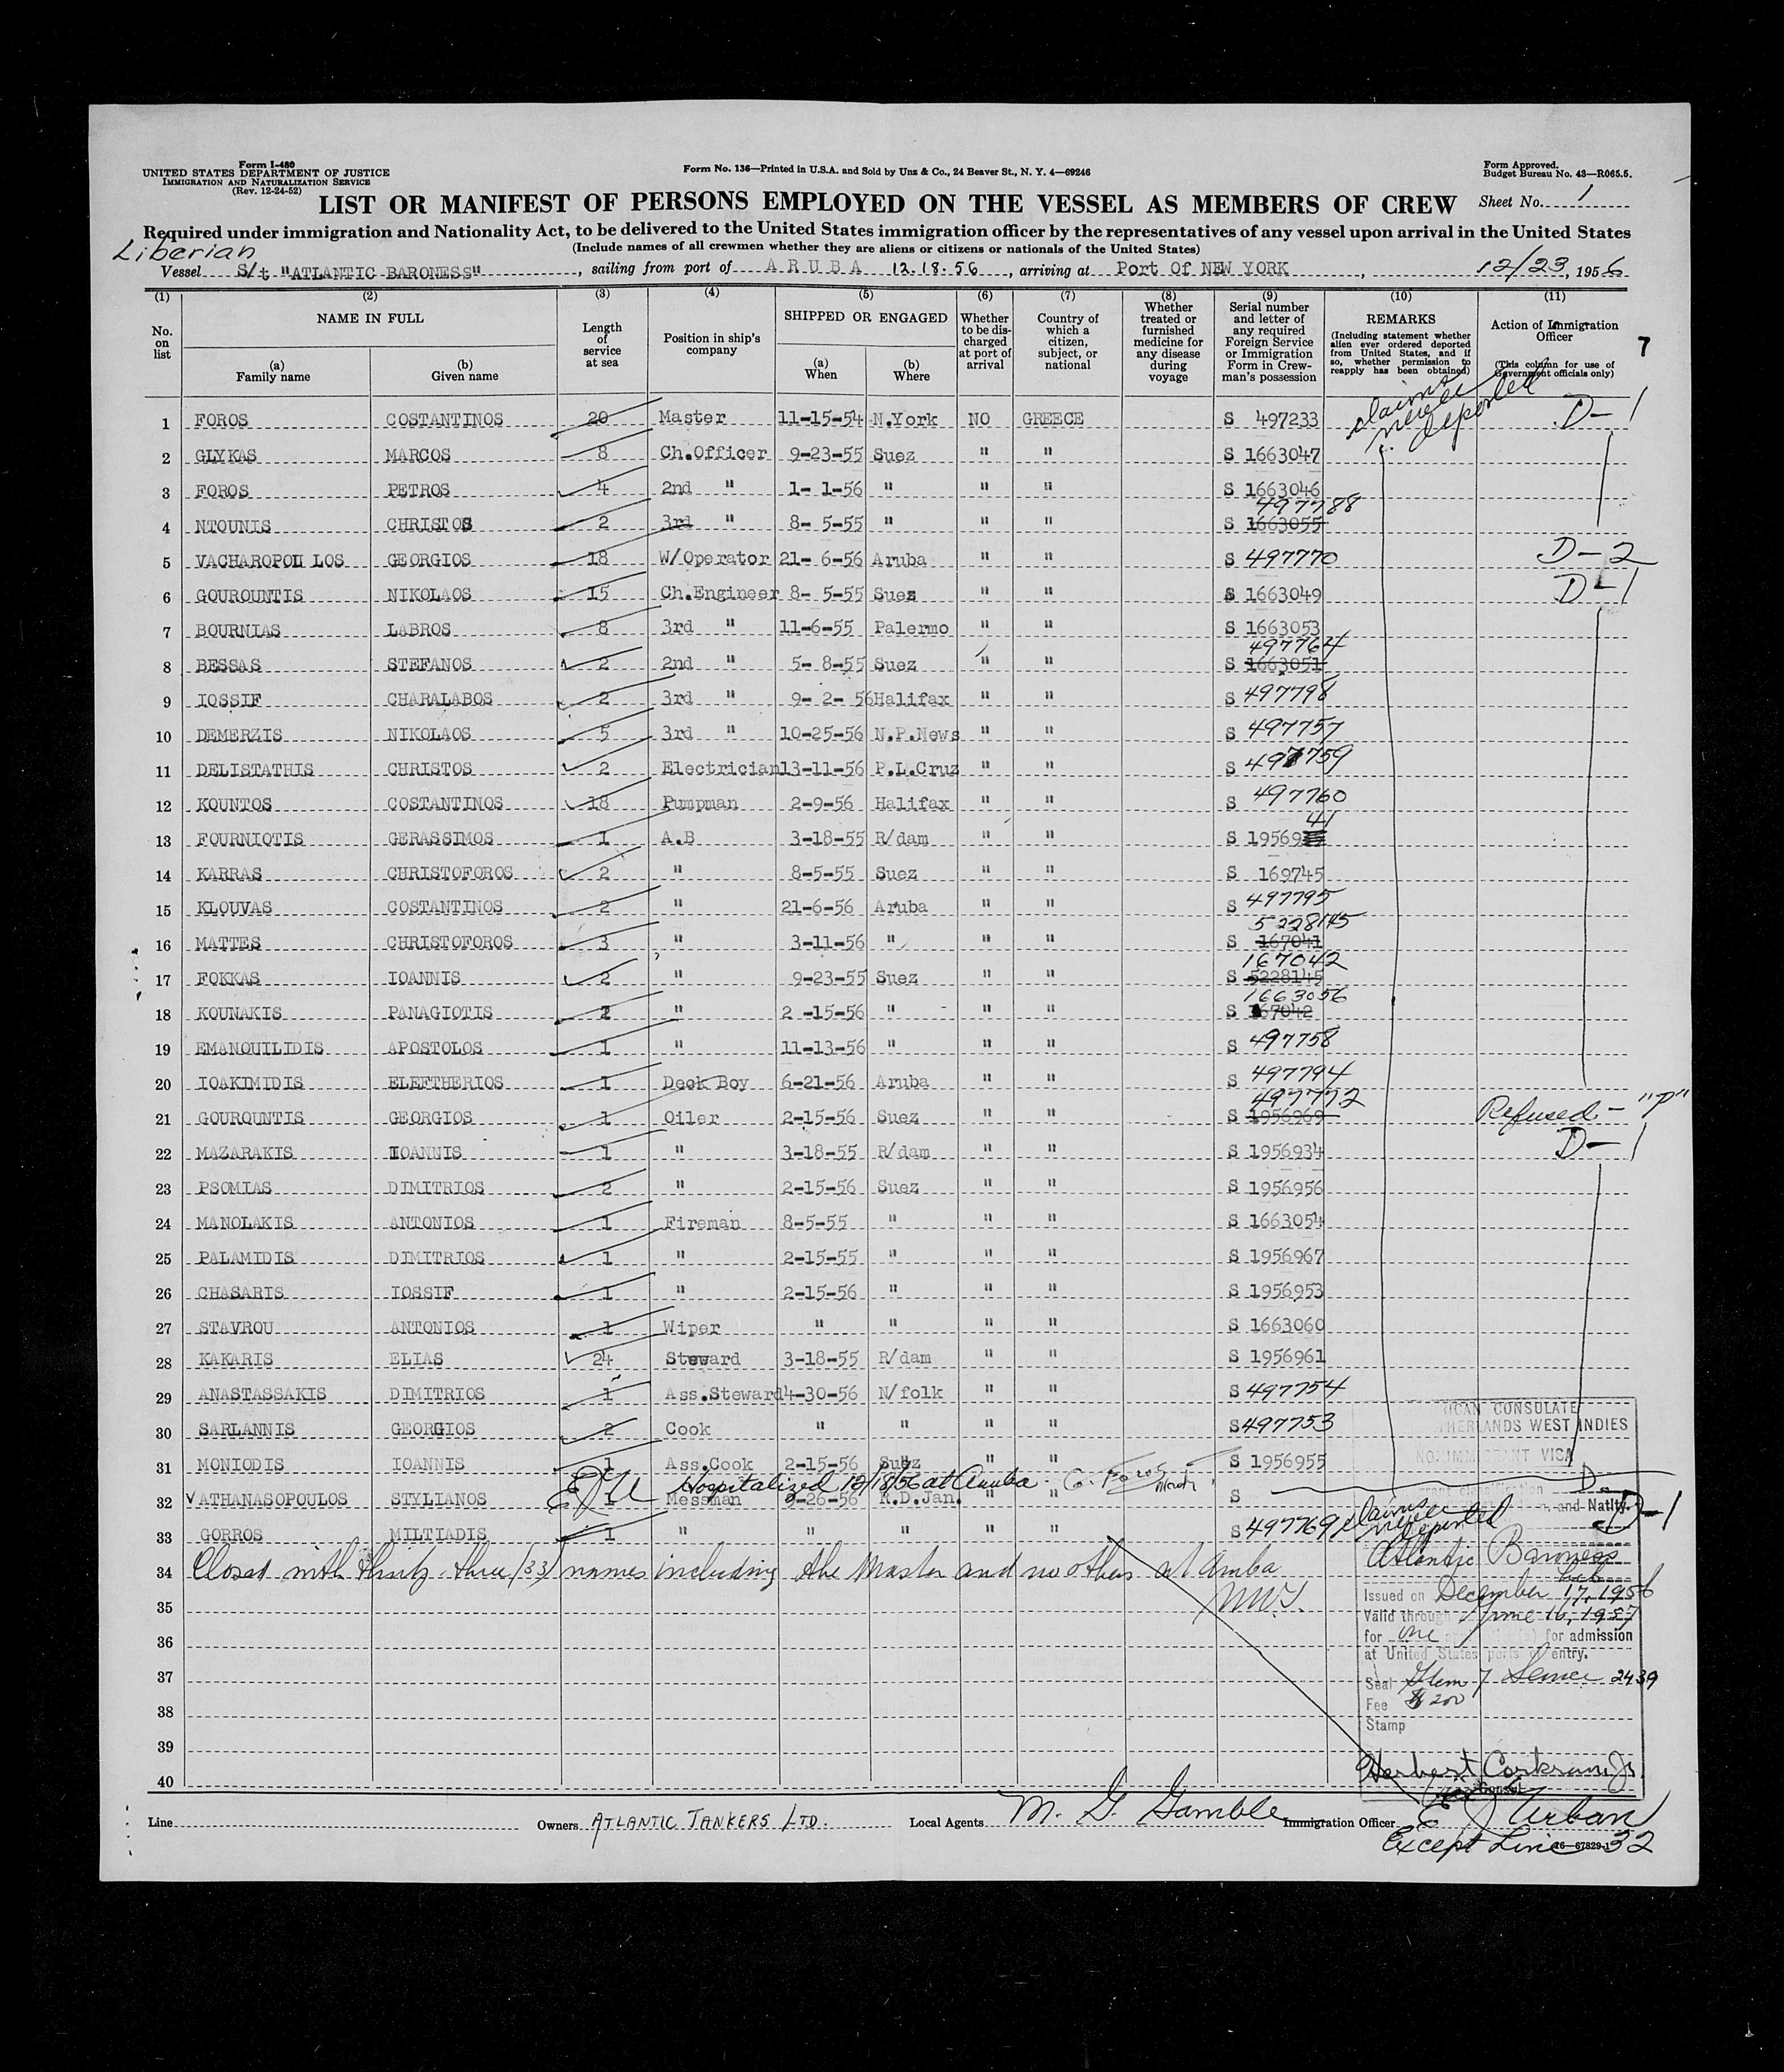 Form I-480
UNITED STATES DEPARTMENT OF JUSTICE
IMMIGRATION AND NATURALIZATION SERVICE
(Rev. 12-24-52)
Form No. 136—Printed in U.S.A. and Sold by Unz & Co., 24 Beaver St., N. Y. 4—69246
Form Approved.
Budget Bureau No. 43—R065.5.
LIST OR MANIFEST OF PERSONS EMPLOYED ON THE VESSEL AS MEMBERS OF CREW
Sheet No. 1
Required under immigration and Nationality Act, to be delivered to the United States immigration officer by the representatives of any vessel upon arrival in the United States
(Include names of all crewmen whether they are aliens or citizens or nationals of the United States)
Liberian
Vessel S/t "ATLANTIC BARONESS", sailing from port of ARUBA 12.18.56, arriving at Port Of NEW YORK, 12/23, 1956
(1) No. on list
(2) NAME IN FULL
(a) Family name
(b) Given name
(3) Length of service at sea
(4) Position in ship's company
(5) SHIPPED OR ENGAGED
(a) When
(b) Where
(6) Whether to be discharged at port of arrival
(7) Country of which a citizen, subject, or national
(8) Whether treated or furnished medicine for any disease during voyage
(9) Serial number and letter of any required Foreign Service or Immigration Form in Crewman's possession
(10) REMARKS (Including statement whether alien ever ordered deported from United States, and if so, whether permission to reapply has been obtained)
(11) Action of Immigration Officer (This column for use of Government officials only)
7
claims never deported
1 FOROS COSTANTINOS 20 Master 11-15-54 N.York NO GREECE S 497233 D-1
2 GLYKAS MARCOS 8 Ch.Officer 9-23-55 Suez " " S 1663047
3 FOROS PETROS 4 2nd " 1- 1-56 " " " S 1663046
497788
4 NTOUNIS CHRISTOS 2 3rd " 8- 5-55 " " " S 1663055
5 VACHAROPOULLOS GEORGIOS 18 W/Operator 21- 6-56 Aruba " " S 497770 D-2
6 GOUROUNTIS NIKOLAOS 15 Ch.Engineer 8- 5-55 Suez " " S 1663049 D-1
7 BOURNIAS LABROS 8 3rd " 11-6-55 Palermo " " S 1663053
497764
8 BESSAS STEFANOS 2 2nd " 5- 8-55 Suez " " S 1663051
9 IOSSIF CHARALABOS 2 3rd " 9- 2- 56 Halifax " " S 497798
10 DEMERZIS NIKOLAOS 5 3rd " 10-25-56 N.P.News " " S 497757
11 DELISTATHIS CHRISTOS 2 Electrician 13-11-56 P.L.Cruz " " S 497759
12 KOUNTOS COSTANTINOS 18 Pumpman 2-9-56 Halifax " " S 497760
41
13 FOURNIOTIS GERASSIMOS 1 A.B 3-18-55 R/dam " " S 19569
14 KARRAS CHRISTOFOROS 2 " 8-5-55 Suez " " S 169745
15 KLOUVAS COSTANTINOS 2 " 21-6-56 Aruba " " S 497795
5228145
16 MATTES CHRISTOFOROS 3 " 3-11-56 " " " S 167041
167042
17 FOKKAS IOANNIS 2 " 9-23-55 Suez " " S 5228145
1663056
18 KOUNAKIS PANAGIOTIS " 2 -15-56 " " " S 167042
19 EMANOUILIDIS APOSTOLOS 1 " 11-13-56 " " " S 497758
20 IOAKIMIDIS ELEFTHERIOS 1 Deck Boy 6-21-56 Aruba " " S 497794
497772
21 GOUROUNTIS GEORGIOS 1 Oiler 2-15-56 Suez " " S 1956969 Refused - "P"
22 MAZARAKIS IOANNIS 1 " 3-18-55 R/dam " " S 1956934 D-1
23 PSOMIAS DIMITRIOS 2 " 2-15-56 Suez " " S 1956956
24 MANOLAKIS ANTONIOS 1 Fireman 8-5-55 " " " S 1663054
25 PALAMIDIS DIMITRIOS 1 " 2-15-55 " " " S 1956967
26 CHASARIS IOSSIF 1 " 2-15-56 " " " S 1956953
27 STAVROU ANTONIOS 1 Wiper " " " " S 1663060
28 KAKARIS ELIAS 24 Steward 3-18-55 R/dam " " S 1956961
29 ANASTASSAKIS DIMITRIOS 1 Ass.Steward 4-30-56 N/folk " " S 497754
30 SARLANNIS GEORGIOS 2 Cook " " " " S 497753
31 MONIODIS IOANNIS 1 Ass.Cook 2-15-56 Suez " " S 1956955
EJU Hospitalized 12/18/56 at Aruba
32 ATHANASOPOULOS STYLIANOS 1 Messman 9-26-56 R.D.Jan. " " S
33 GORROS MILTIADIS 1 " " " " " S 497769 claims never deported D-1
34 Closed with thirty-three (33) names including the Master and no others at Aruba
35
36
37
38
39
40
CONSULATE
WEST INDIES
NONIMMIGRANT VISA
D
and Natlty.
Atlantic Baroness
Issued on December 17, 1956
Valid through June 16, 1957
for one for admission
at United States ports of entry.
Seal 2439
Fee
Stamp
Herbert Corkran Jr.
Line
Owners ATLANTIC TANKERS LTD.
Local Agents M. G. Gamble
Immigration Officer E J Urban
Except Line 32
16—67829-1